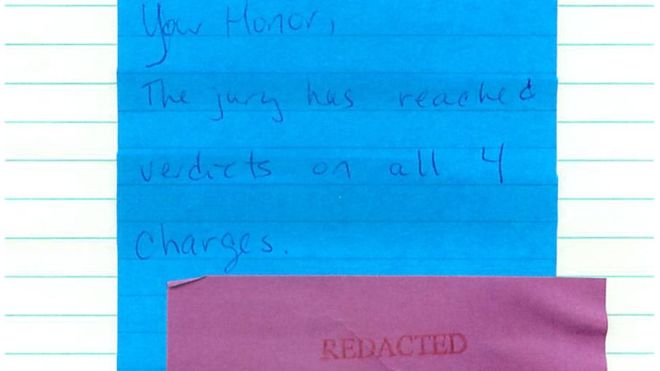 Your Honor,
The jury has reached
verdicts on all 4
charges.
REDACTED